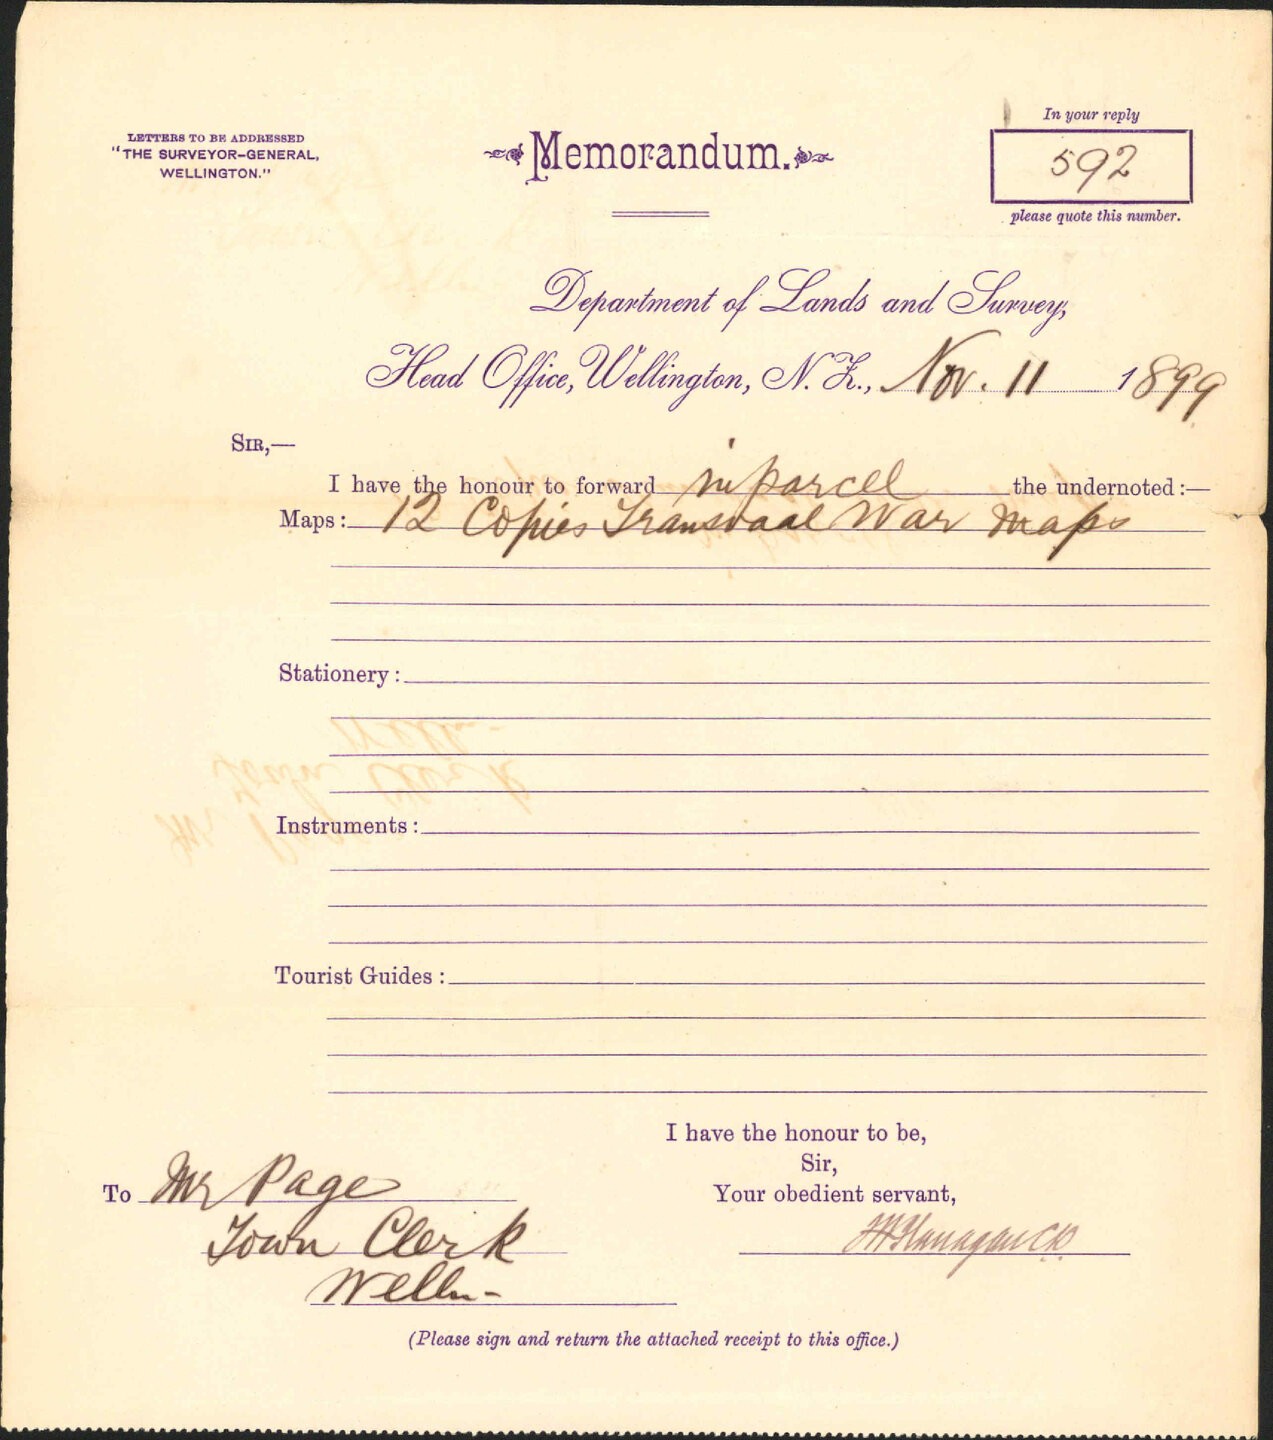 LETTERS TO BE ADDRESSED
"THE SURVEYOR-GENERAL,
WELLINGTON."
Memorandum.
In your reply
592
please quote this number.
Department of Lands and Survey,
Head Office, Wellington, N.Z., Nov. 11 1899
SIR,—
I have the honour to forward in parcel the undernoted:—
Maps: 12 Copies Transvaal War Maps
Stationery:
Instruments:
Tourist Guides:
I have the honour to be,
Sir,
Your obedient servant,
To Mr Page
Town Clerk
Welln-
(Please sign and return the attached receipt to this office.)